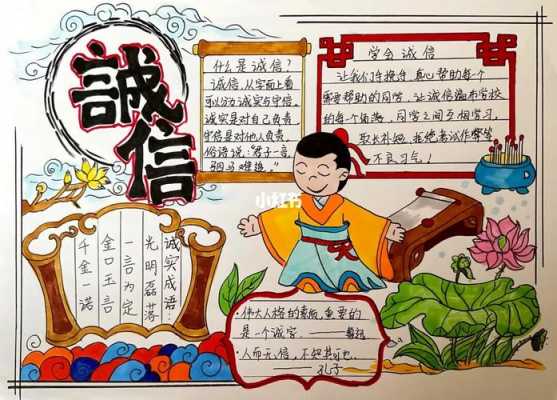 誠信
什么是诚信?
诚信,从字面上看
可以分为诚实与守信。
诚实是对自己负责
守信是对他人负责。
俗语说:"君子一言,
驷马难追。"
学会诚信
让我们 真心帮助每个
需要帮助的同学,让诚信遍布学校
的每个角落,同学之间互相学习。
取长补短,拒绝考试作弊等
不良习气!
小红书
诚实成语
光明磊落
一言为定
金口玉言
千金一诺
·伟大人格的素质,重要的
是一个诚字。——鲁迅
·人而无信,不知其可也。
——孔子